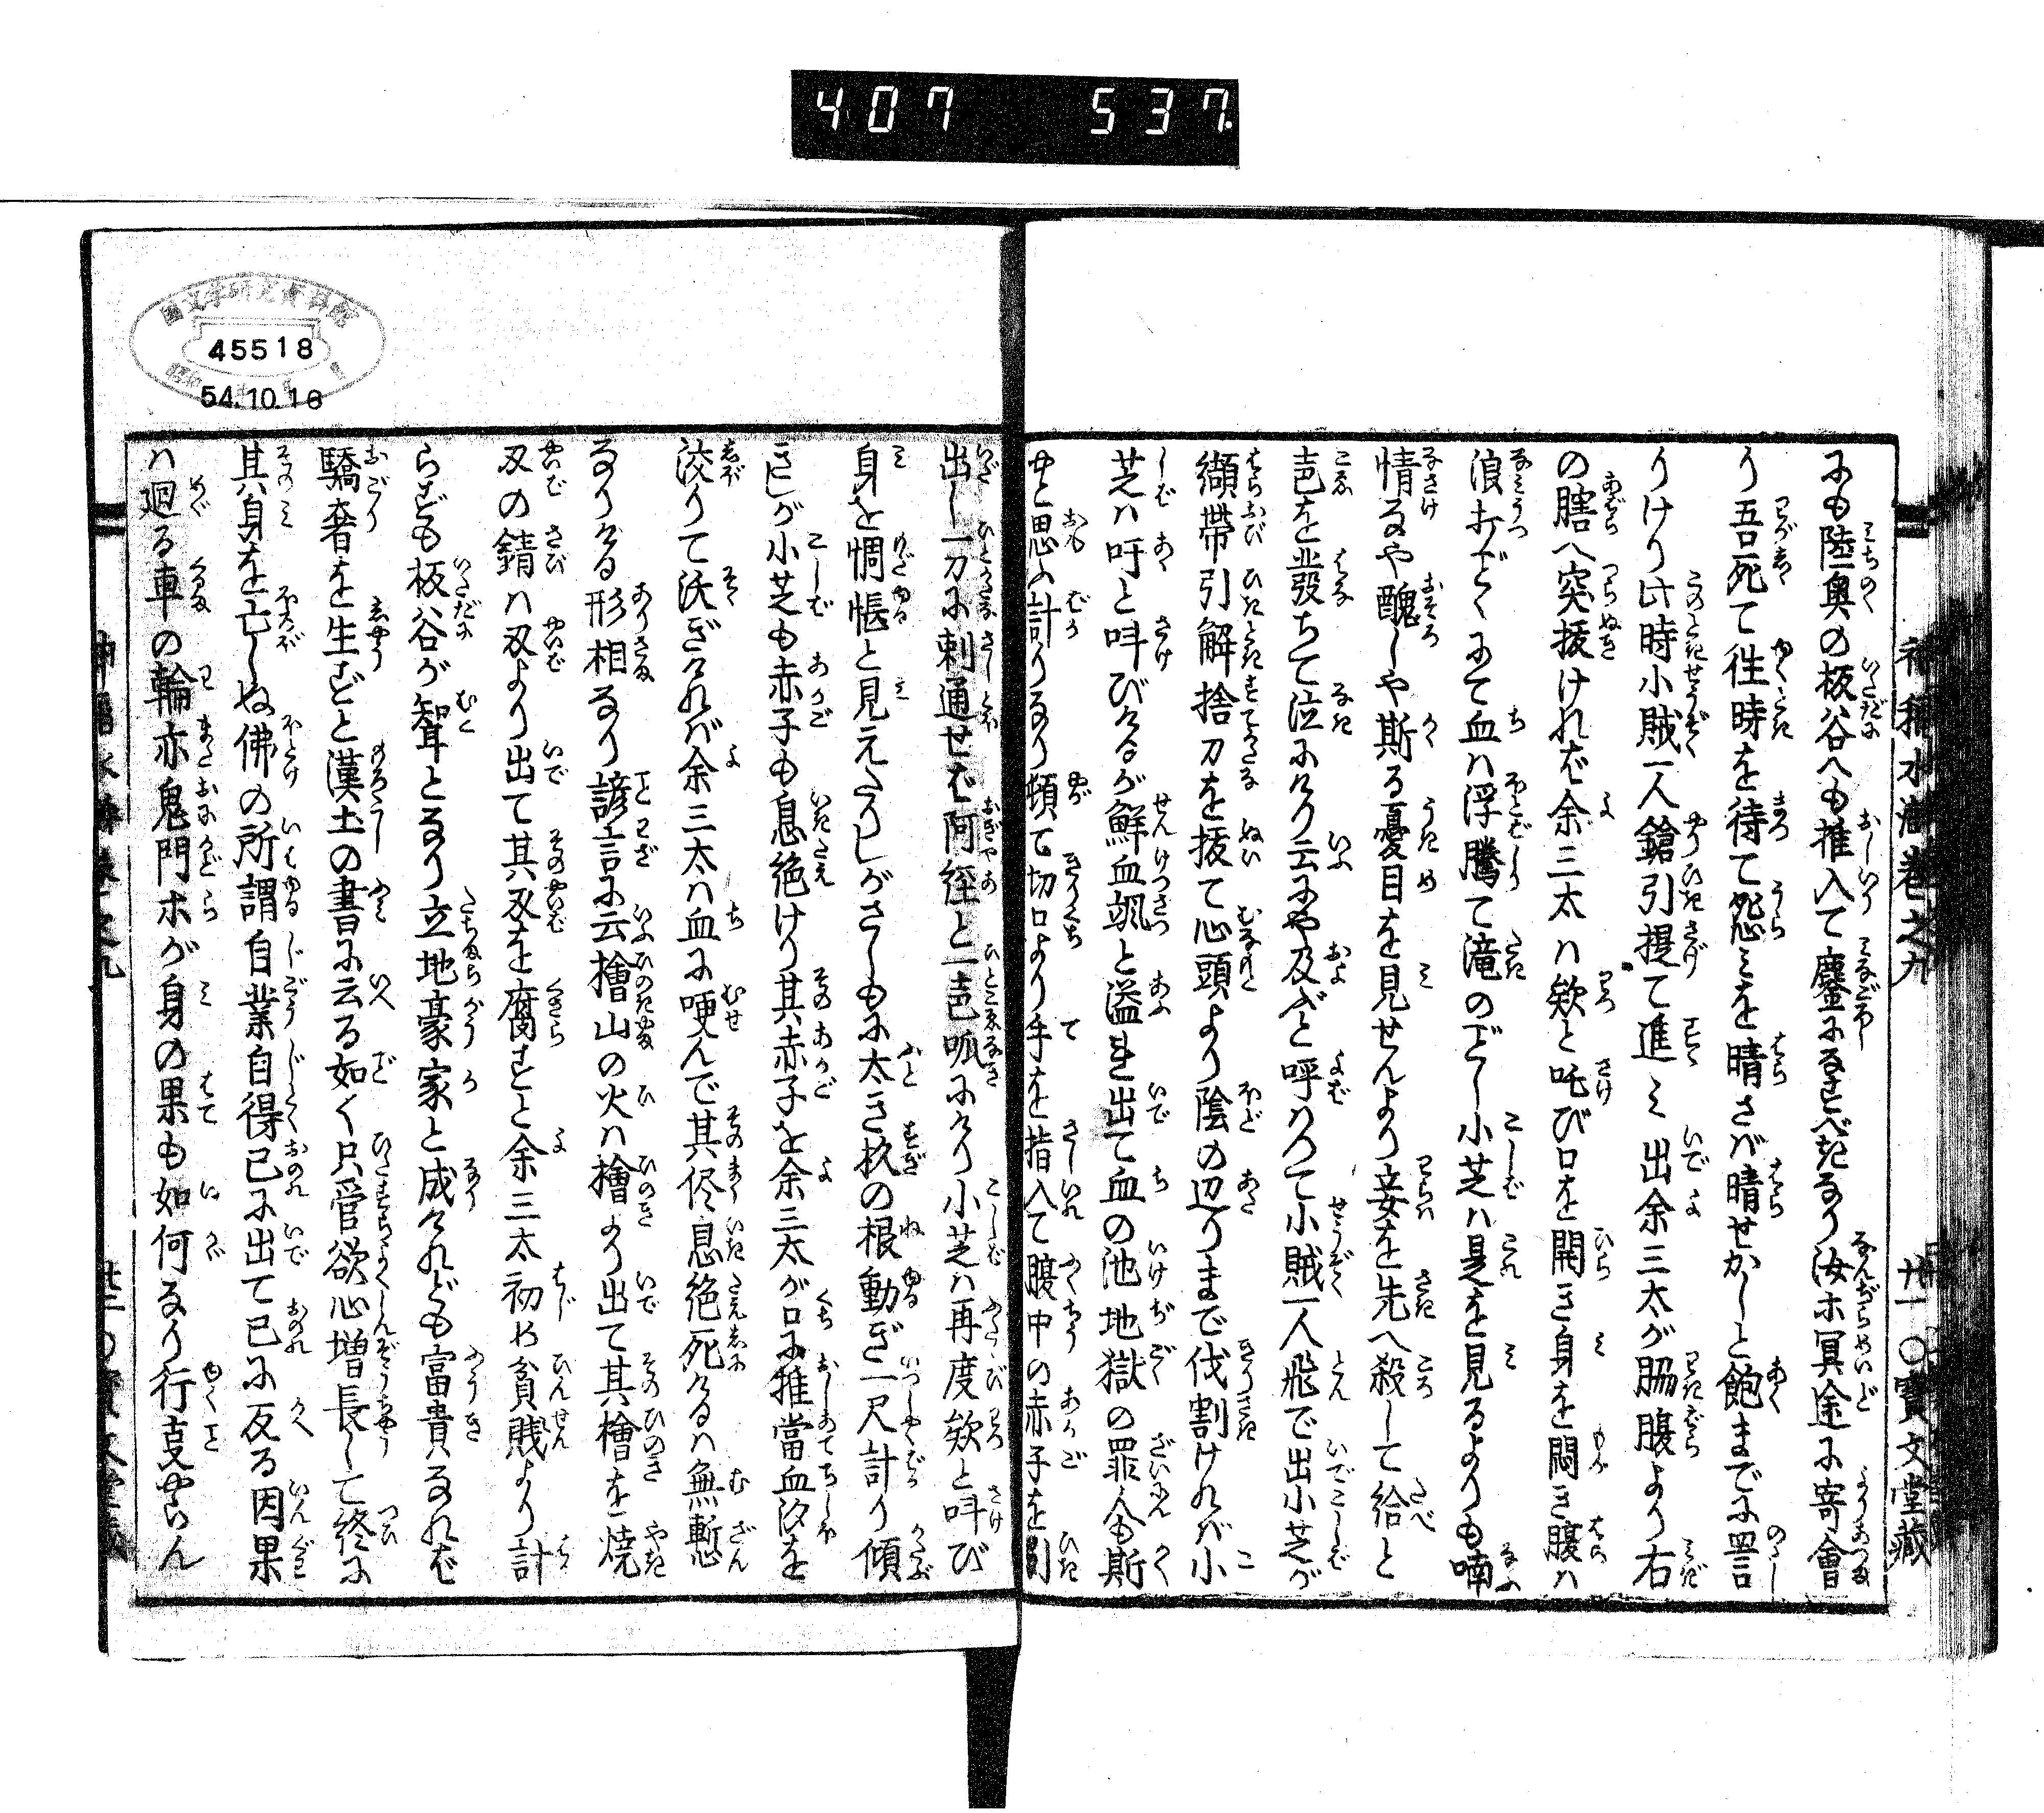 407 537.
巻之九
〇寶文堂藏
にも陸奥の板谷へも推入て鏖にるすべきなり汝ホ冥途に寄會
り吾死て往時を待て怨ミを晴さバ晴せかしと飽までに罵
りけり此時小賊一人鎗引提て進ミ出余三太が脇腹より右
の膳へ突抜けれバ余三太ハ欸と吒び口を開き身を悶き腹ハ
浪打ごとくにて血ハ浮騰て滝のごとし小芝ハ是を見るよりも喃
情なや醜しや斯る憂目を見せんより妾を先へ殺して給と
声を發ちて泣にけり云にや及ぶと呼ハつて小賊一人飛で出小芝が
纈帯引解捨刀を抜て心頭より陰の辺りまで伐割けれバ小
芝ハ吁と呌びけるが鮮血颯と溢出て血の池地獄の罪人も斯
やと思ふ計りなり頓て切口より手を指入て腹中の赤子を引
出し一刀に刺通せバ阿經と一声呱にけり小芝ハ再度欸と呌び
身を惆悵と見えたりしがさしもに太き杦の根動ぎ一尺計り傾
きしが小芝も赤子も息絶けり其赤子を余三太が口に推當血汐を
洨りて沃ぎけれバ余三太ハ血に哽んで其侭息絶死けるハ無慙
なりける形相なり諺言に云檜山の火ハ檜より出て其檜を焼
刄の錆ハ刄より出て其刄を腐すと余三太初め貧賎より計
らずも板谷が聟となり立地豪家と成けれども富貴なれバ
驕奢を生ずと漢土の書に云る如く只管欲心増長して終に
其身を亡しぬ佛の所謂自業自得己に出て己に反る因果
ハ廻る車の輪亦鬼門ホが身の果も如何なり行支やらん
45518
54.10.16